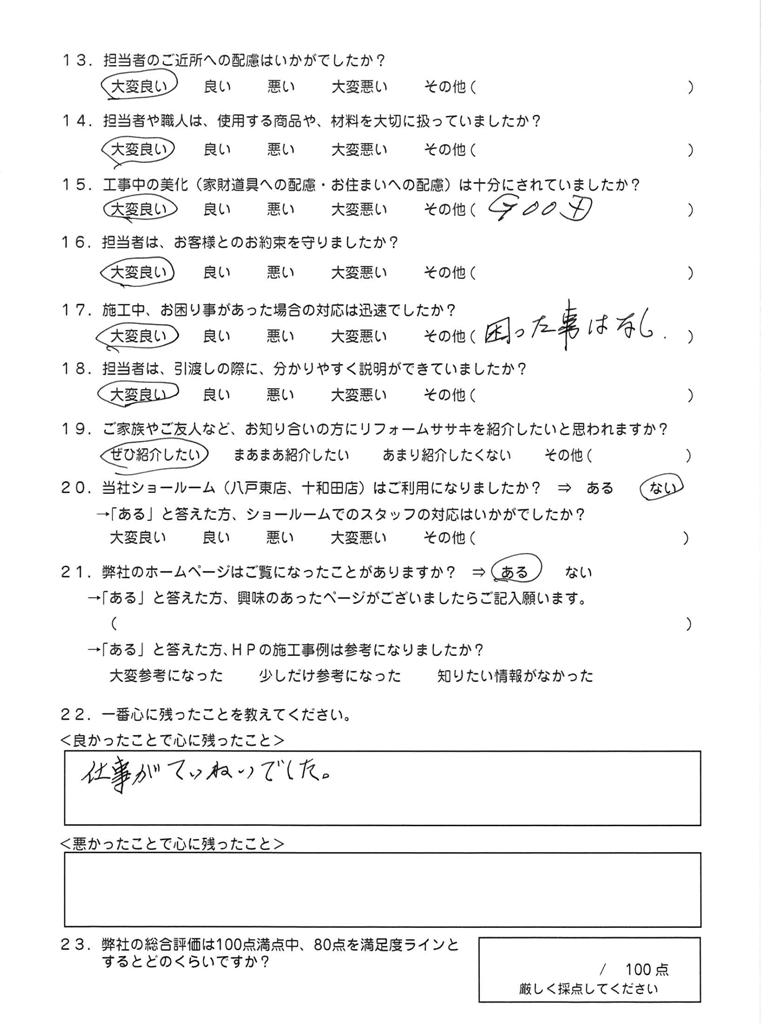 13．担当者のご近所への配慮はいかがでしたか？
大変良い　良い　悪い　大変悪い　その他（　　　）
14．担当者や職人は、使用する商品や、材料を大切に扱っていましたか？
大変良い　良い　悪い　大変悪い　その他（　　　）
15．工事中の美化（家財道具への配慮・お住まいへの配慮）は十分にされていましたか？
大変良い　良い　悪い　大変悪い　その他（　GOOD　）
16．担当者は、お客様とのお約束を守りましたか？
大変良い　良い　悪い　大変悪い　その他（　　　）
17．施工中、お困り事があった場合の対応は迅速でしたか？
大変良い　良い　悪い　大変悪い　その他（　困った事はなし．　）
18．担当者は、引渡しの際に、分かりやすく説明ができていましたか？
大変良い　良い　悪い　大変悪い　その他（　　　）
19．ご家族やご友人など、お知り合いの方にリフォームササキを紹介したいと思われますか？
ぜひ紹介したい　まあまあ紹介したい　あまり紹介したくない　その他（　　　）
20．当社ショールーム（八戸東店、十和田店）はご利用になりましたか？　⇒　ある　ない
→「ある」と答えた方、ショールームでのスタッフの対応はいかがでしたか？
大変良い　良い　悪い　大変悪い　その他（　　　）
21．弊社のホームページはご覧になったことがありますか？　⇒　ある　ない
→「ある」と答えた方、興味のあったページがございましたらご記入願います。
（　　　）
→「ある」と答えた方、ＨＰの施工事例は参考になりましたか？
大変参考になった　少しだけ参考になった　知りたい情報がなかった
22．一番心に残ったことを教えてください。
＜良かったことで心に残ったこと＞
仕事がていねいでした。
＜悪かったことで心に残ったこと＞
23．弊社の総合評価は100点満点中、80点を満足度ラインと
するとどのくらいですか？
/　100点
厳しく採点してください